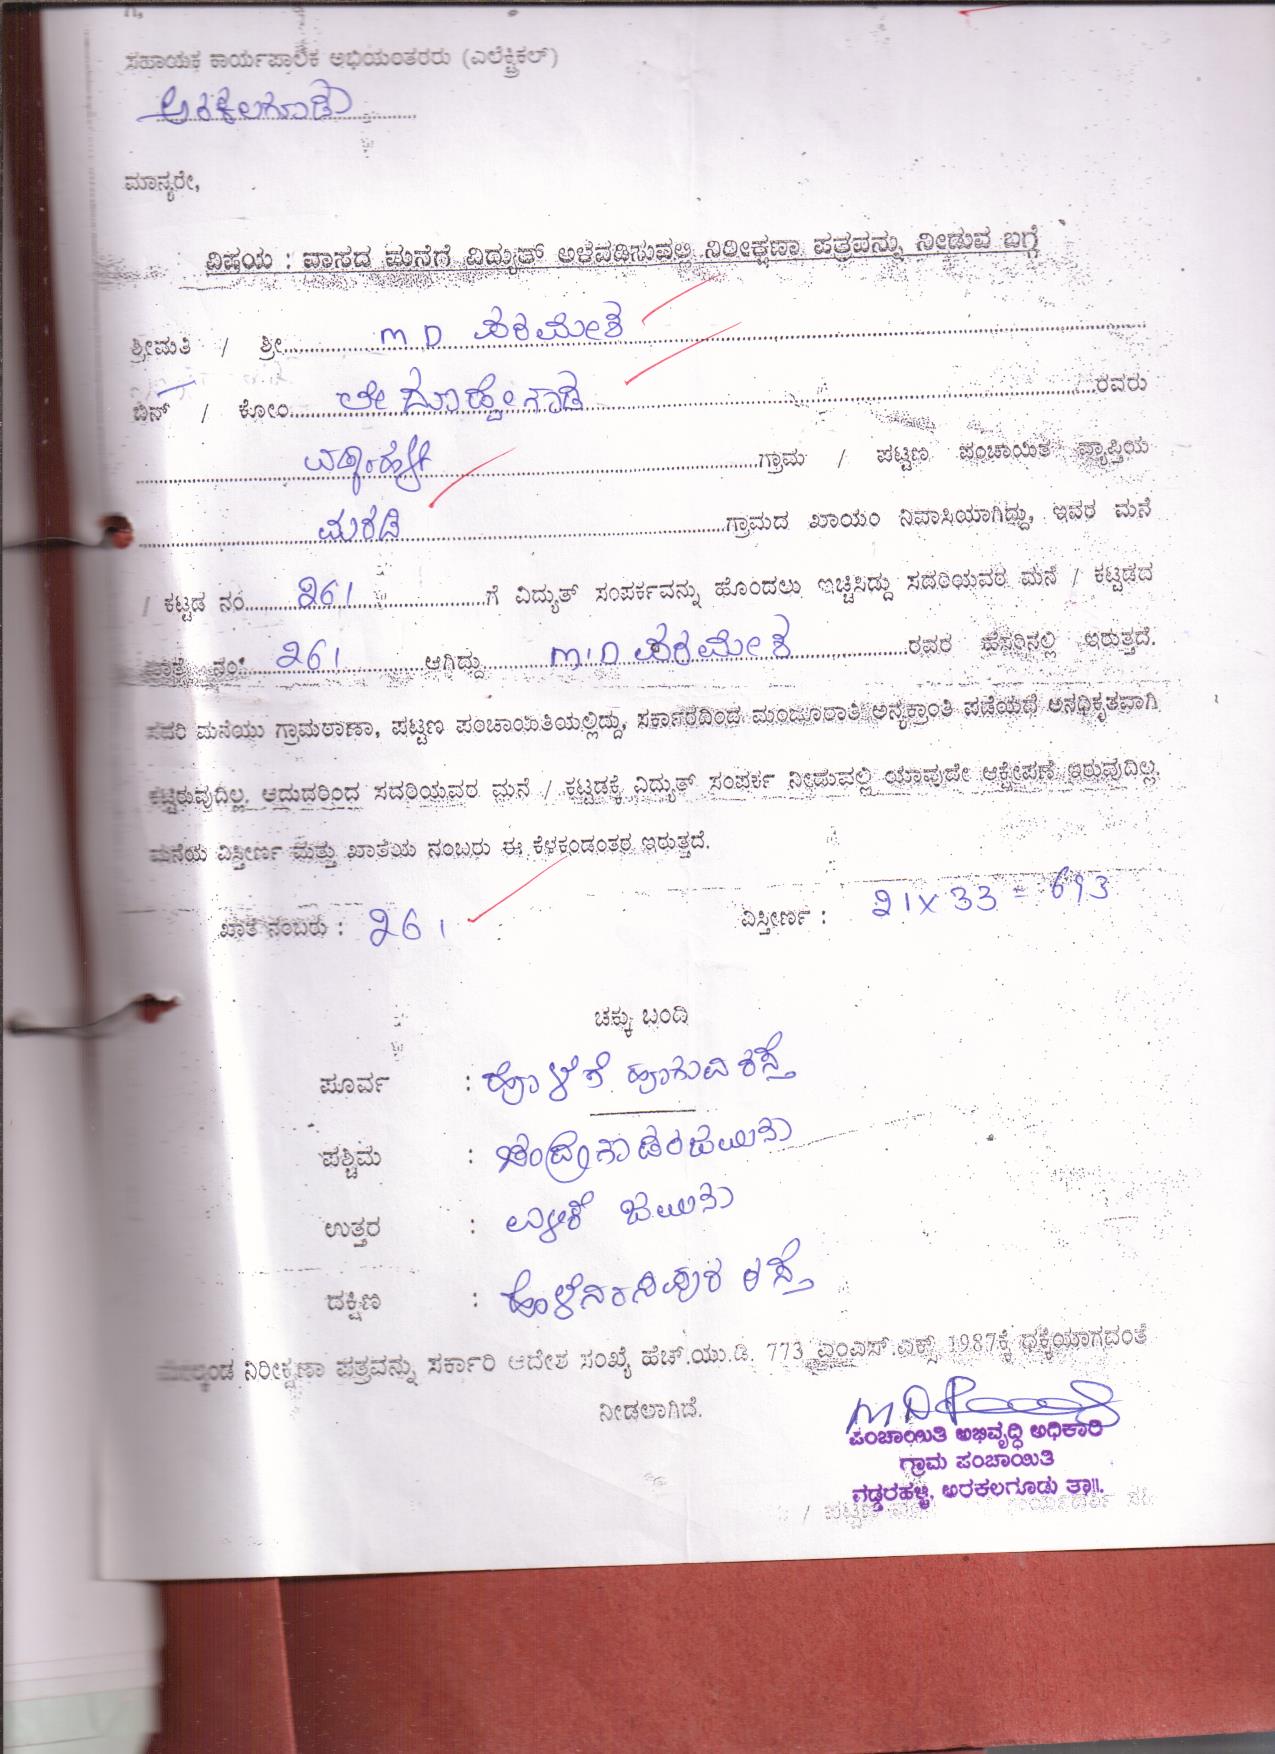 ಗೆ,
ಸಹಾಯಕ ಕಾರ್ಯಪಾಲಕ ಅಭಿಯಂತರರು (ಎಲೆಕ್ಟ್ರಿಕಲ್)
ಅರಕಲಗೂಡು
ಮಾನ್ಯರೇ,
ವಿಷಯ : ವಾಸದ ಮನೆಗೆ ವಿದ್ಯುತ್ ಅಳವಡಿಸುವಲ್ಲಿ ನಿರೀಕ್ಷಣಾ ಪತ್ರವನ್ನು ನೀಡುವ ಬಗ್ಗೆ
ಶ್ರೀಮತಿ / ಶ್ರೀ M D ಪರಮೇಶ
ಬಿನ್ / ಕೋಂ ಲೇ ರವರು
ಗ್ರಾಮ / ಪಟ್ಟಣ ಪಂಚಾಯಿತಿ ವ್ಯಾಪ್ತಿಯ
ಮರಡಿ ಗ್ರಾಮದ ಖಾಯಂ ನಿವಾಸಿಯಾಗಿದ್ದು, ಇವರ ಮನೆ
/ ಕಟ್ಟಡ ನಂ 261 ಗೆ ವಿದ್ಯುತ್ ಸಂಪರ್ಕವನ್ನು ಹೊಂದಲು ಇಚ್ಛಿಸಿದ್ದು ಸದರಿಯವರ ಮನೆ / ಕಟ್ಟಡದ
ಖಾತೆ ನಂ: 261 ಆಗಿದ್ದು M.D ಪರಮೇಶ ರವರ ಹೆಸರಿನಲ್ಲಿ ಇರುತ್ತದೆ.
ಸದರಿ ಮನೆಯು ಗ್ರಾಮಠಾಣಾ, ಪಟ್ಟಣ ಪಂಚಾಯಿತಿಯಲ್ಲಿದ್ದು, ಸರ್ಕಾರದಿಂದ ಮಂಜೂರಾತಿ ಅನ್ಯಕ್ರಾಂತಿ ಪಡೆಯದೆ ಅನಧಿಕೃತವಾಗಿ
ಕಟ್ಟಿರುವುದಿಲ್ಲ. ಆದುದರಿಂದ ಸದರಿಯವರ ಮನೆ / ಕಟ್ಟಡಕ್ಕೆ ವಿದ್ಯುತ್ ಸಂಪರ್ಕ ನೀಡುವಲ್ಲಿ ಯಾವುದೇ ಆಕ್ಷೇಪಣೆ ಇರುವುದಿಲ್ಲ.
ಮನೆಯ ವಿಸ್ತೀರ್ಣ ಮತ್ತು ಖಾತೆಯ ನಂಬರು ಈ ಕೆಳಕಂಡಂತರ ಇರುತ್ತದೆ.
ಖಾತೆ ನಂಬರು : 261 ವಿಸ್ತೀರ್ಣ : 21 x 33 = 693
ಚಕ್ಕು ಬಂದಿ
ಪೂರ್ವ : ಹೊಳೆಗೆ ಹೂಗುವ ರಸ್ತೆ
ಪಶ್ಚಿಮ : ಜಮೀನು
ಉತ್ತರ : ಜಮೀನು
ದಕ್ಷಿಣ : ಹೊಳೆನರಸಿಪುರ ರಸ್ತೆ
ಮೇಲ್ಕಂಡ ನಿರೀಕ್ಷಣಾ ಪತ್ರವನ್ನು ಸರ್ಕಾರಿ ಆದೇಶ ಸಂಖ್ಯೆ ಹೆಚ್.ಯು.ಡಿ. 773 ಎಂಎಸ್.ಎಕ್ಸ್ 1987ಕ್ಕೆ ಧಕ್ಕೆಯಾಗದಂತೆ
ನೀಡಲಾಗಿದೆ.
ಪಂಚಾಯಿತಿ ಅಭಿವೃದ್ಧಿ ಅಧಿಕಾರಿ
ಗ್ರಾಮ ಪಂಚಾಯಿತಿ
ವಡ್ಡರಹಳ್ಳಿ, ಅರಕಲಗೂಡು ತಾ||.
/ ಪಟ್ಟಣ